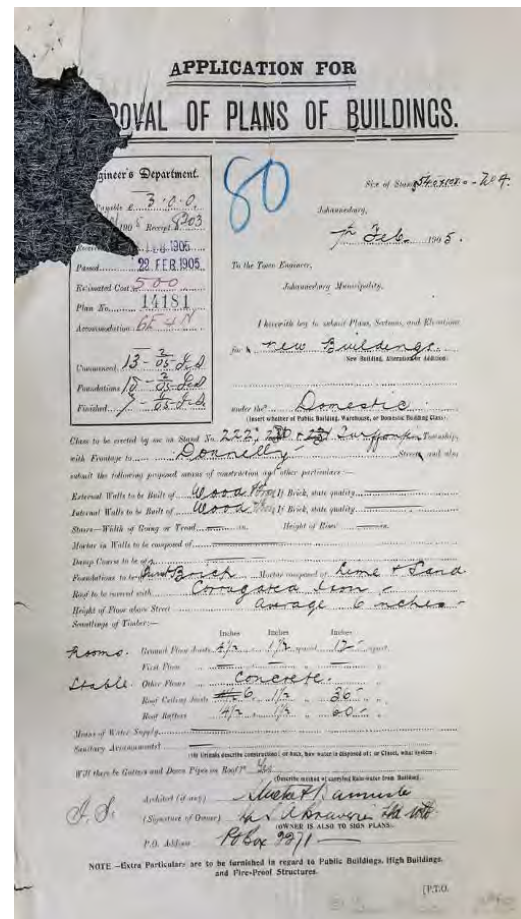 APPLICATION FOR
OVAL OF PLANS OF BUILDINGS.
gineer's Department.
Payable £ 3.0.0.
190 Receipt 8203
80
Size of Stand
Johannesburg,
Feb. 1905.
1905
Passed 28 FEB. 1905
Estimated Cost 500
Plan No. 14181
Accommodation
To the Town Engineer,
Johannesburg Municipality.
I herewith beg to submit Plans, Sections, and Elevations
for a New Buildings
New Building, Alteration or Addition.
Commenced 13 - 2/05
Foundations 2/05
Finished 7 -
under the Domestic
(Insert whether of Public Building, Warehouse, or Domestic Building Class)
Class to be erected by me in Stand No. 222, Turffontein Township,
with Frontage to Donnelly Street, and also
submit the following proposed means of construction and other particulars:—
External Walls to be Built of Wood & Iron If Brick, state quality
Internal Walls to be Built of Wood & Iron If Brick, state quality
Stairs—Width of Going or Tread in. Height of Riser in.
Mortar in Walls to be composed of
Damp Course to be of
Foundations to be Burnt Brick Mortar composed of Lime & Sand
Roof to be covered with Corrugated Iron
Height of Floor above Street 6 inches
Scantlings of Timber:—
Inches Inches Inches
Rooms. Ground Floor Joists 4½ 1½ spaced 12 apart.
First Floor
Stable Other Floors Concrete.
Roof Ceiling Joists 6 1½ 36
Roof Rafters 4½ 1½ 60
Means of Water Supply
Sanitary Arrangements
Will there be Gutters and Down Pipes on Roof? Yes
(Describe method of carrying Rain-water from Building)
Architect (if any)
(Signature of Owner)
(OWNER IS ALSO TO SIGN PLANS.
P.O. Address PO Box
NOTE—Extra Particulars are to be furnished in regard to Public Buildings, High Buildings,
and Fire-Proof Structures.
[P.T.O.